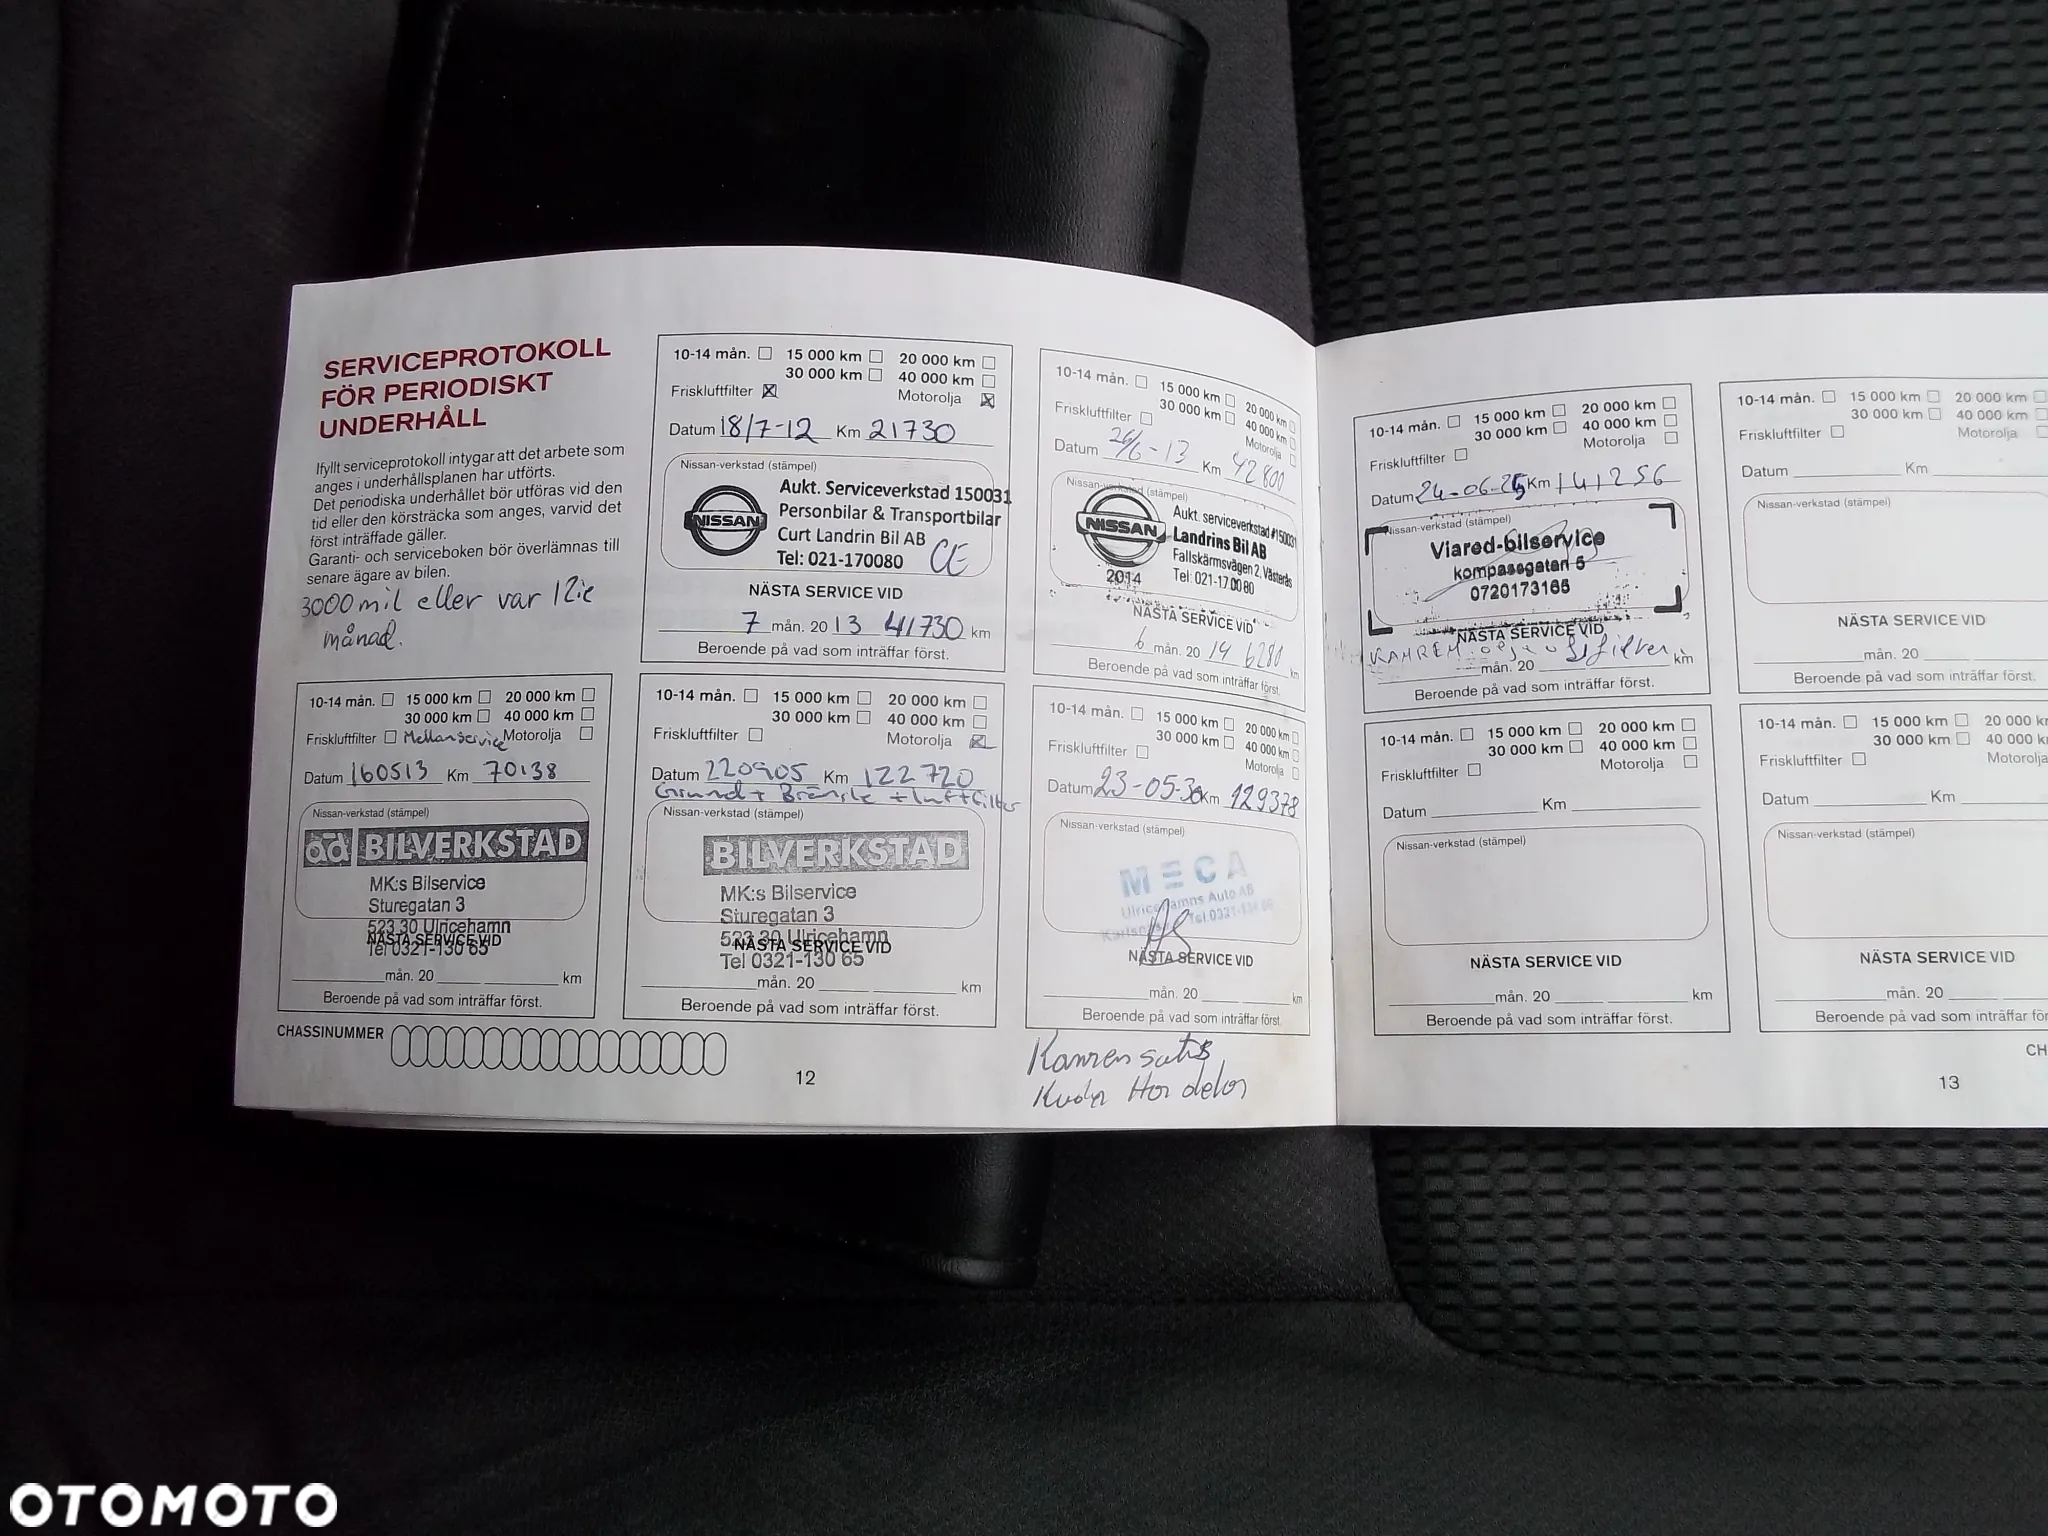 SERVICEPROTOKOLL
FÖR PERIODISKT
UNDERHÅLL
Ifyllt serviceprotokoll intygar att det arbete som
anges i underhållsplanen har utförts.
Det periodiska underhållet bör utföras vid den
tid eller den körsträcka som anges, varvid det
först inträffade gäller.
Garanti- och serviceboken bör överlämnas till
senare ägare av bilen.
3000 mil eller var 12:e
månad.
10-14 mån. 15 000 km 20 000 km
30 000 km 40 000 km
Friskluftfilter Motorolja
Datum 18/7-12 Km 21730
Nissan-verkstad (stämpel)
NISSAN
Aukt. Serviceverkstad 150031
Personbilar & Transportbilar
Curt Landrin Bil AB
Tel: 021-170080
NÄSTA SERVICE VID
7 mån. 20 13 41730 km
Beroende på vad som inträffar först.
10-14 mån. 15 000 km 20 000 km
30 000 km 40 000 km
Friskluftfilter Motorolja
Datum 26/6-13 Km 42800
Nissan-verkstad (stämpel)
NISSAN
2014
Aukt. serviceverkstad #150031
Landrins Bil AB
Fallskärmsvägen 2, Västerås
Tel: 021-17 00 80
NÄSTA SERVICE VID
6 mån. 20 14 6280 km
Beroende på vad som inträffar först.
10-14 mån. 15 000 km 20 000 km
30 000 km 40 000 km
Friskluftfilter Mellanservice Motorolja
Datum 160513 Km 70138
Nissan-verkstad (stämpel)
ad BILVERKSTAD
MK:s Bilservice
Sturegatan 3
523 30 Ulricehamn
NÄSTA SERVICE VID
Tel 0321-130 65
mån. 20 km
Beroende på vad som inträffar först.
10-14 mån. 15 000 km 20 000 km
30 000 km 40 000 km
Friskluftfilter Motorolja
Datum 220905 Km 122720
Grund + Bränsle + luftfilter
Nissan-verkstad (stämpel)
BILVERKSTAD
MK:s Bilservice
Sturegatan 3
523 30 Ulricehamn
NÄSTA SERVICE VID
Tel 0321-130 65
mån. 20 km
Beroende på vad som inträffar först.
10-14 mån. 15 000 km 20 000 km
30 000 km 40 000 km
Friskluftfilter Motorolja
Datum 23-05-30 Km 129378
Nissan-verkstad (stämpel)
MECA
Ulricehamns Auto AB
NÄSTA SERVICE VID
mån. 20 km
Beroende på vad som inträffar först.
CHASSINUMMER
12
10-14 mån. 15 000 km 20 000 km
30 000 km 40 000 km
Friskluftfilter Motorolja
Datum 24-06-25 Km 141256
Nissan-verkstad (stämpel)
Viared-bilservice
kompassgatan 5
0720173165
NÄSTA SERVICE VID
mån. 20 km
Beroende på vad som inträffar först.
10-14 mån. 15 000 km 20 000 km
30 000 km 40 000 km
Friskluftfilter Motorolja
Datum Km
Nissan-verkstad (stämpel)
NÄSTA SERVICE VID
mån. 20
Beroende på vad som inträffar först.
10-14 mån. 15 000 km 20 000 km
30 000 km 40 000 km
Friskluftfilter Motorolja
Datum Km
Nissan-verkstad (stämpel)
NÄSTA SERVICE VID
mån. 20 km
Beroende på vad som inträffar först.
10-14 mån. 15 000 km 20 000 k
30 000 km 40 000 k
Friskluftfilter Motorolja
Datum Km
Nissan-verkstad (stämpel)
NÄSTA SERVICE VID
mån. 20
Beroende på vad som inträffar för
CH
13
OTOMOTO